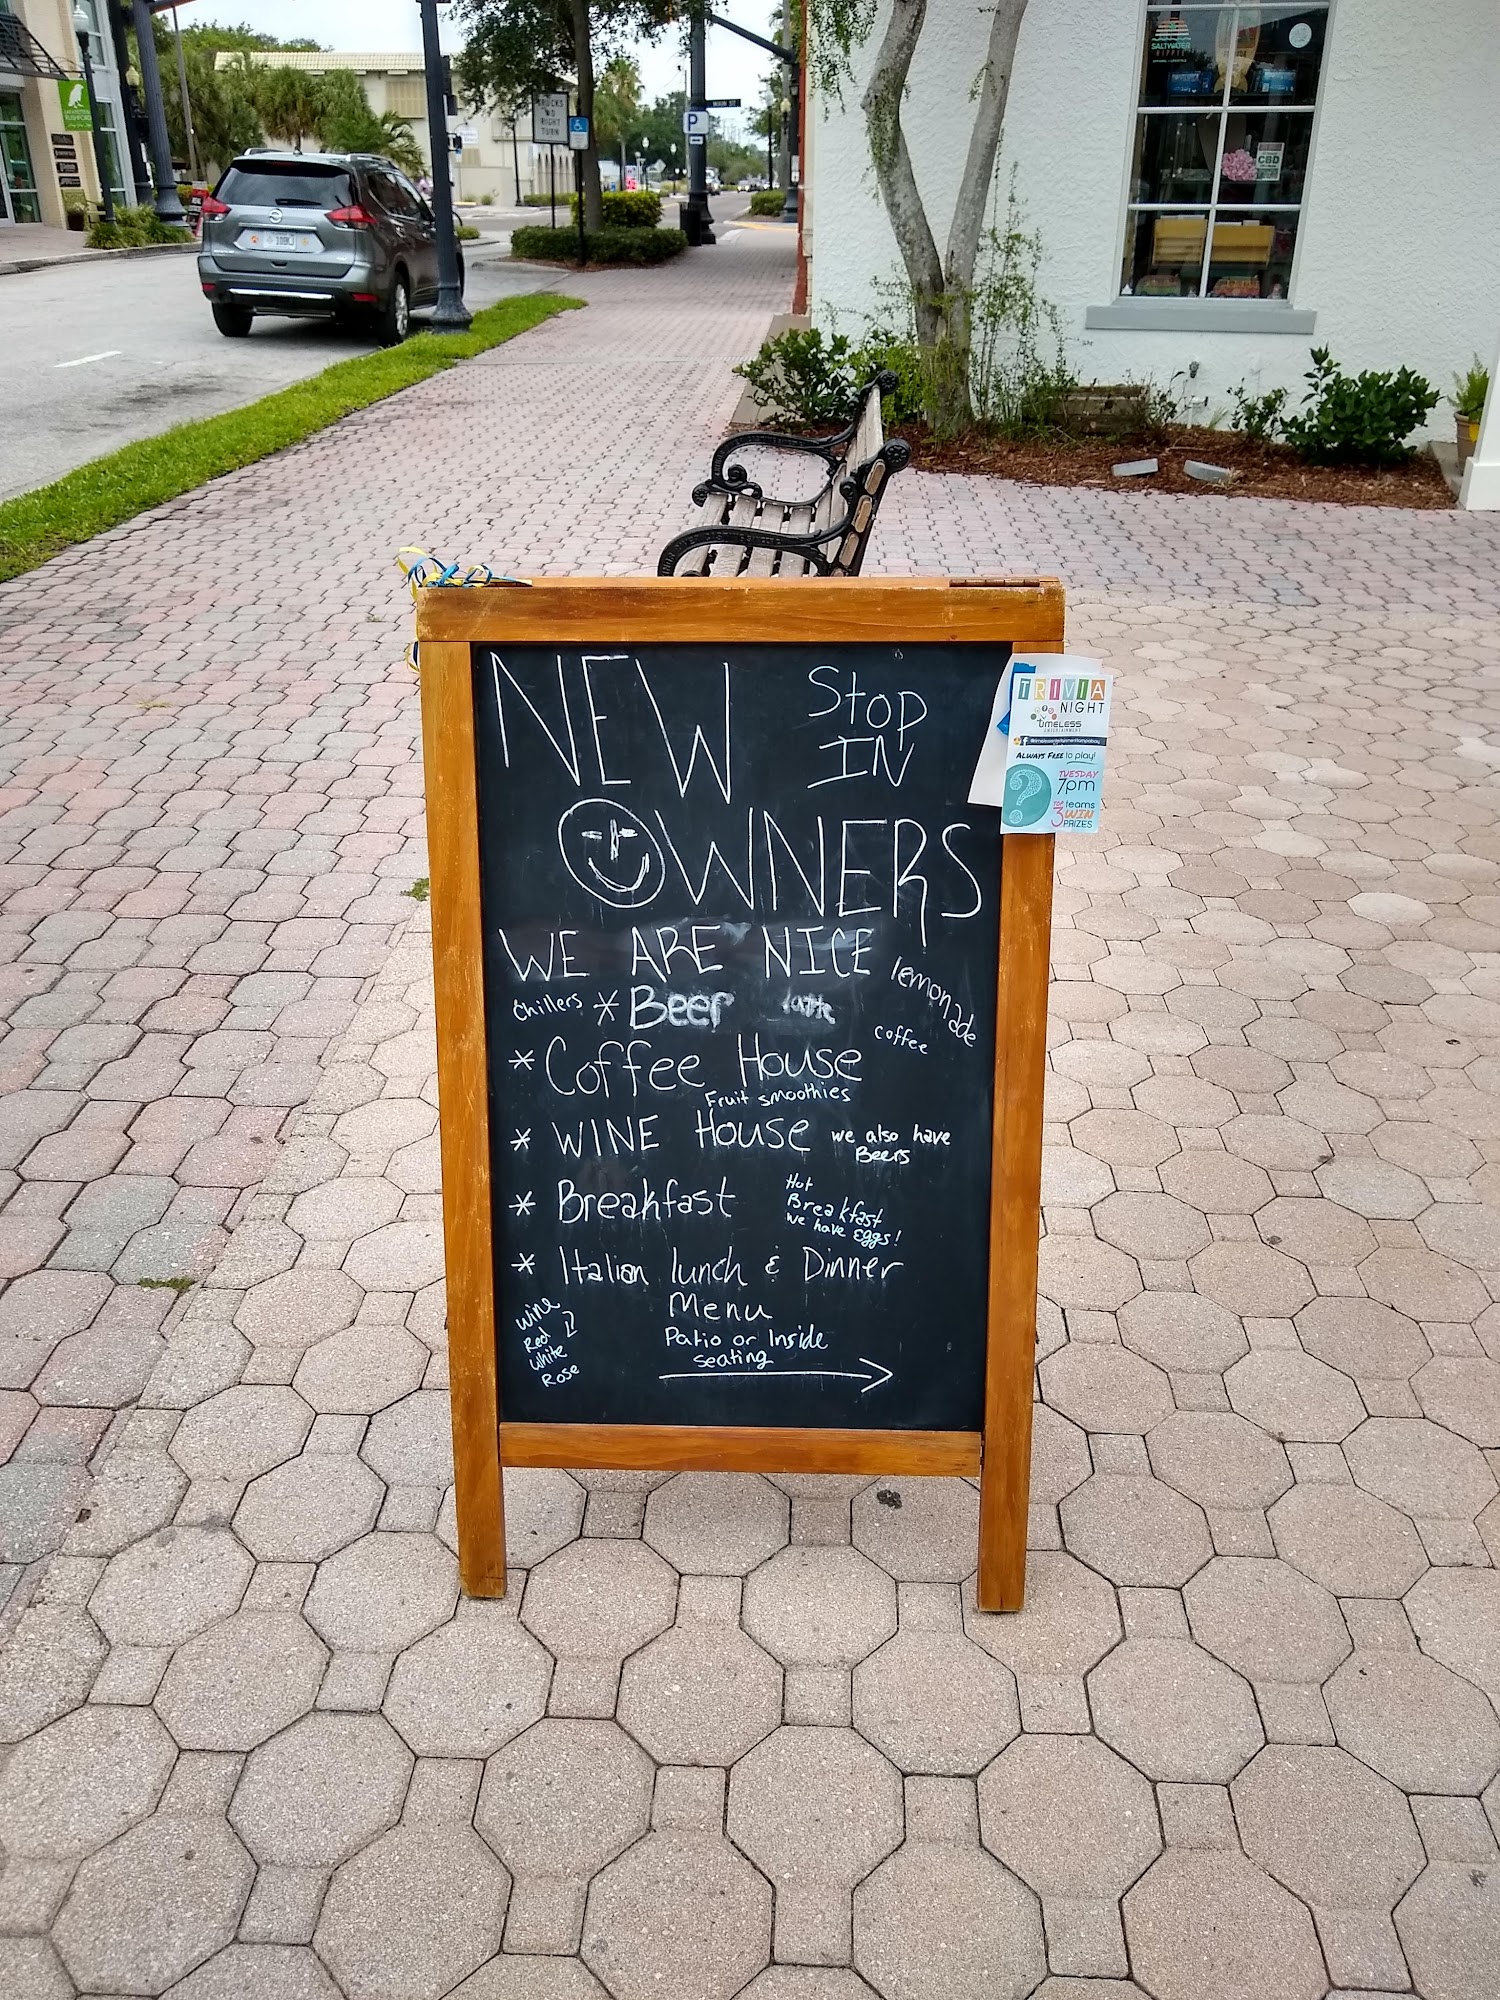 SALTWATER
HIPPIE
CBD
RUSHFORD
TRUCKS
NO
RIGHT
TURN
P
MAIN ST
NEW Stop
IN
OWNERS
WE ARE NICE
lemonade
Chillers * Beer latte
coffee
* Coffee House
Fruit smoothies
* WINE House we also have
Beers
* Breakfast
Hot
Breakfast
we have Eggs!
* Italian lunch & Dinner
Menu
Patio or Inside
seating
Wine
Red
White
Rose
TRIVIA
NIGHT
TIMELESS
ENTERTAINMENT
ALWAYS FREE to play!
TUESDAY
7pm
TOP 3 teams
WIN
PRIZES